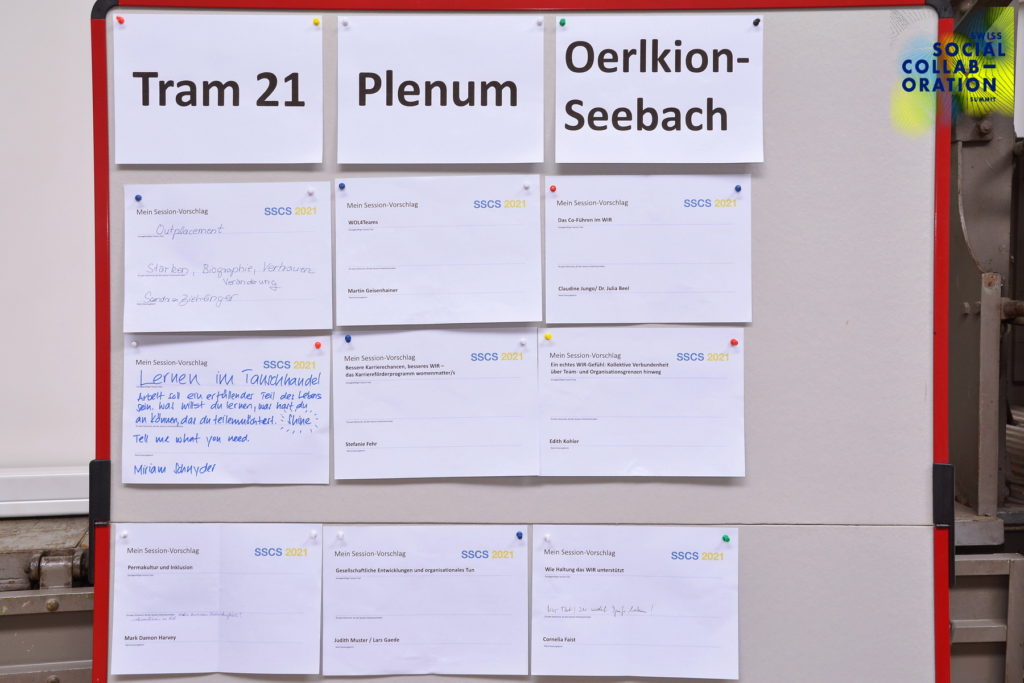 SWISS
SOCIAL
COLLAB-
ORATION
SUMMIT
Tram 21
Plenum
Oerlkion-
Seebach
Mein Session-Vorschlag
SSCS 2021
Outplacement
Stärken, Biographie, Vertrauen
Veränderung
Mein Session-Vorschlag
SSCS 2021
WOL4Teams
Martin Geisenhainer
Mein Session-Vorschlag
SSCS 2021
Das Co-Führen im WIR
Claudine Junge/ Dr. Julia Beel
Mein Session-Vorschlag
SSCS 2021
Lernen im Tauschhandel
Arbeit soll ein erfüllender Teil des Lebens
sein. Was willst du lernen, was hast du
an können, das du teilen möchtest. Shine
Tell me what you need.
Miriam Schnyder
Mein Session-Vorschlag
SSCS 2021
Bessere Karrierechancen, besseres WIR –
das Karriereförderprogramm womenmatter/s
Stefanie Fehr
Mein Session-Vorschlag
SSCS 2021
Ein echtes WIR-Gefühl: Kollektive Verbundenheit
über Team- und Organisationsgrenzen hinweg
Edith Kohler
Mein Session-Vorschlag
SSCS 2021
Permakultur und Inklusion
Mark Damon Harvey
Mein Session-Vorschlag
SSCS 2021
Gesellschaftliche Entwicklungen und organisationales Tun
Judith Muster / Lars Gaede
Mein Session-Vorschlag
SSCS 2021
Wie Haltung das WIR unterstützt
Cornelia Faist